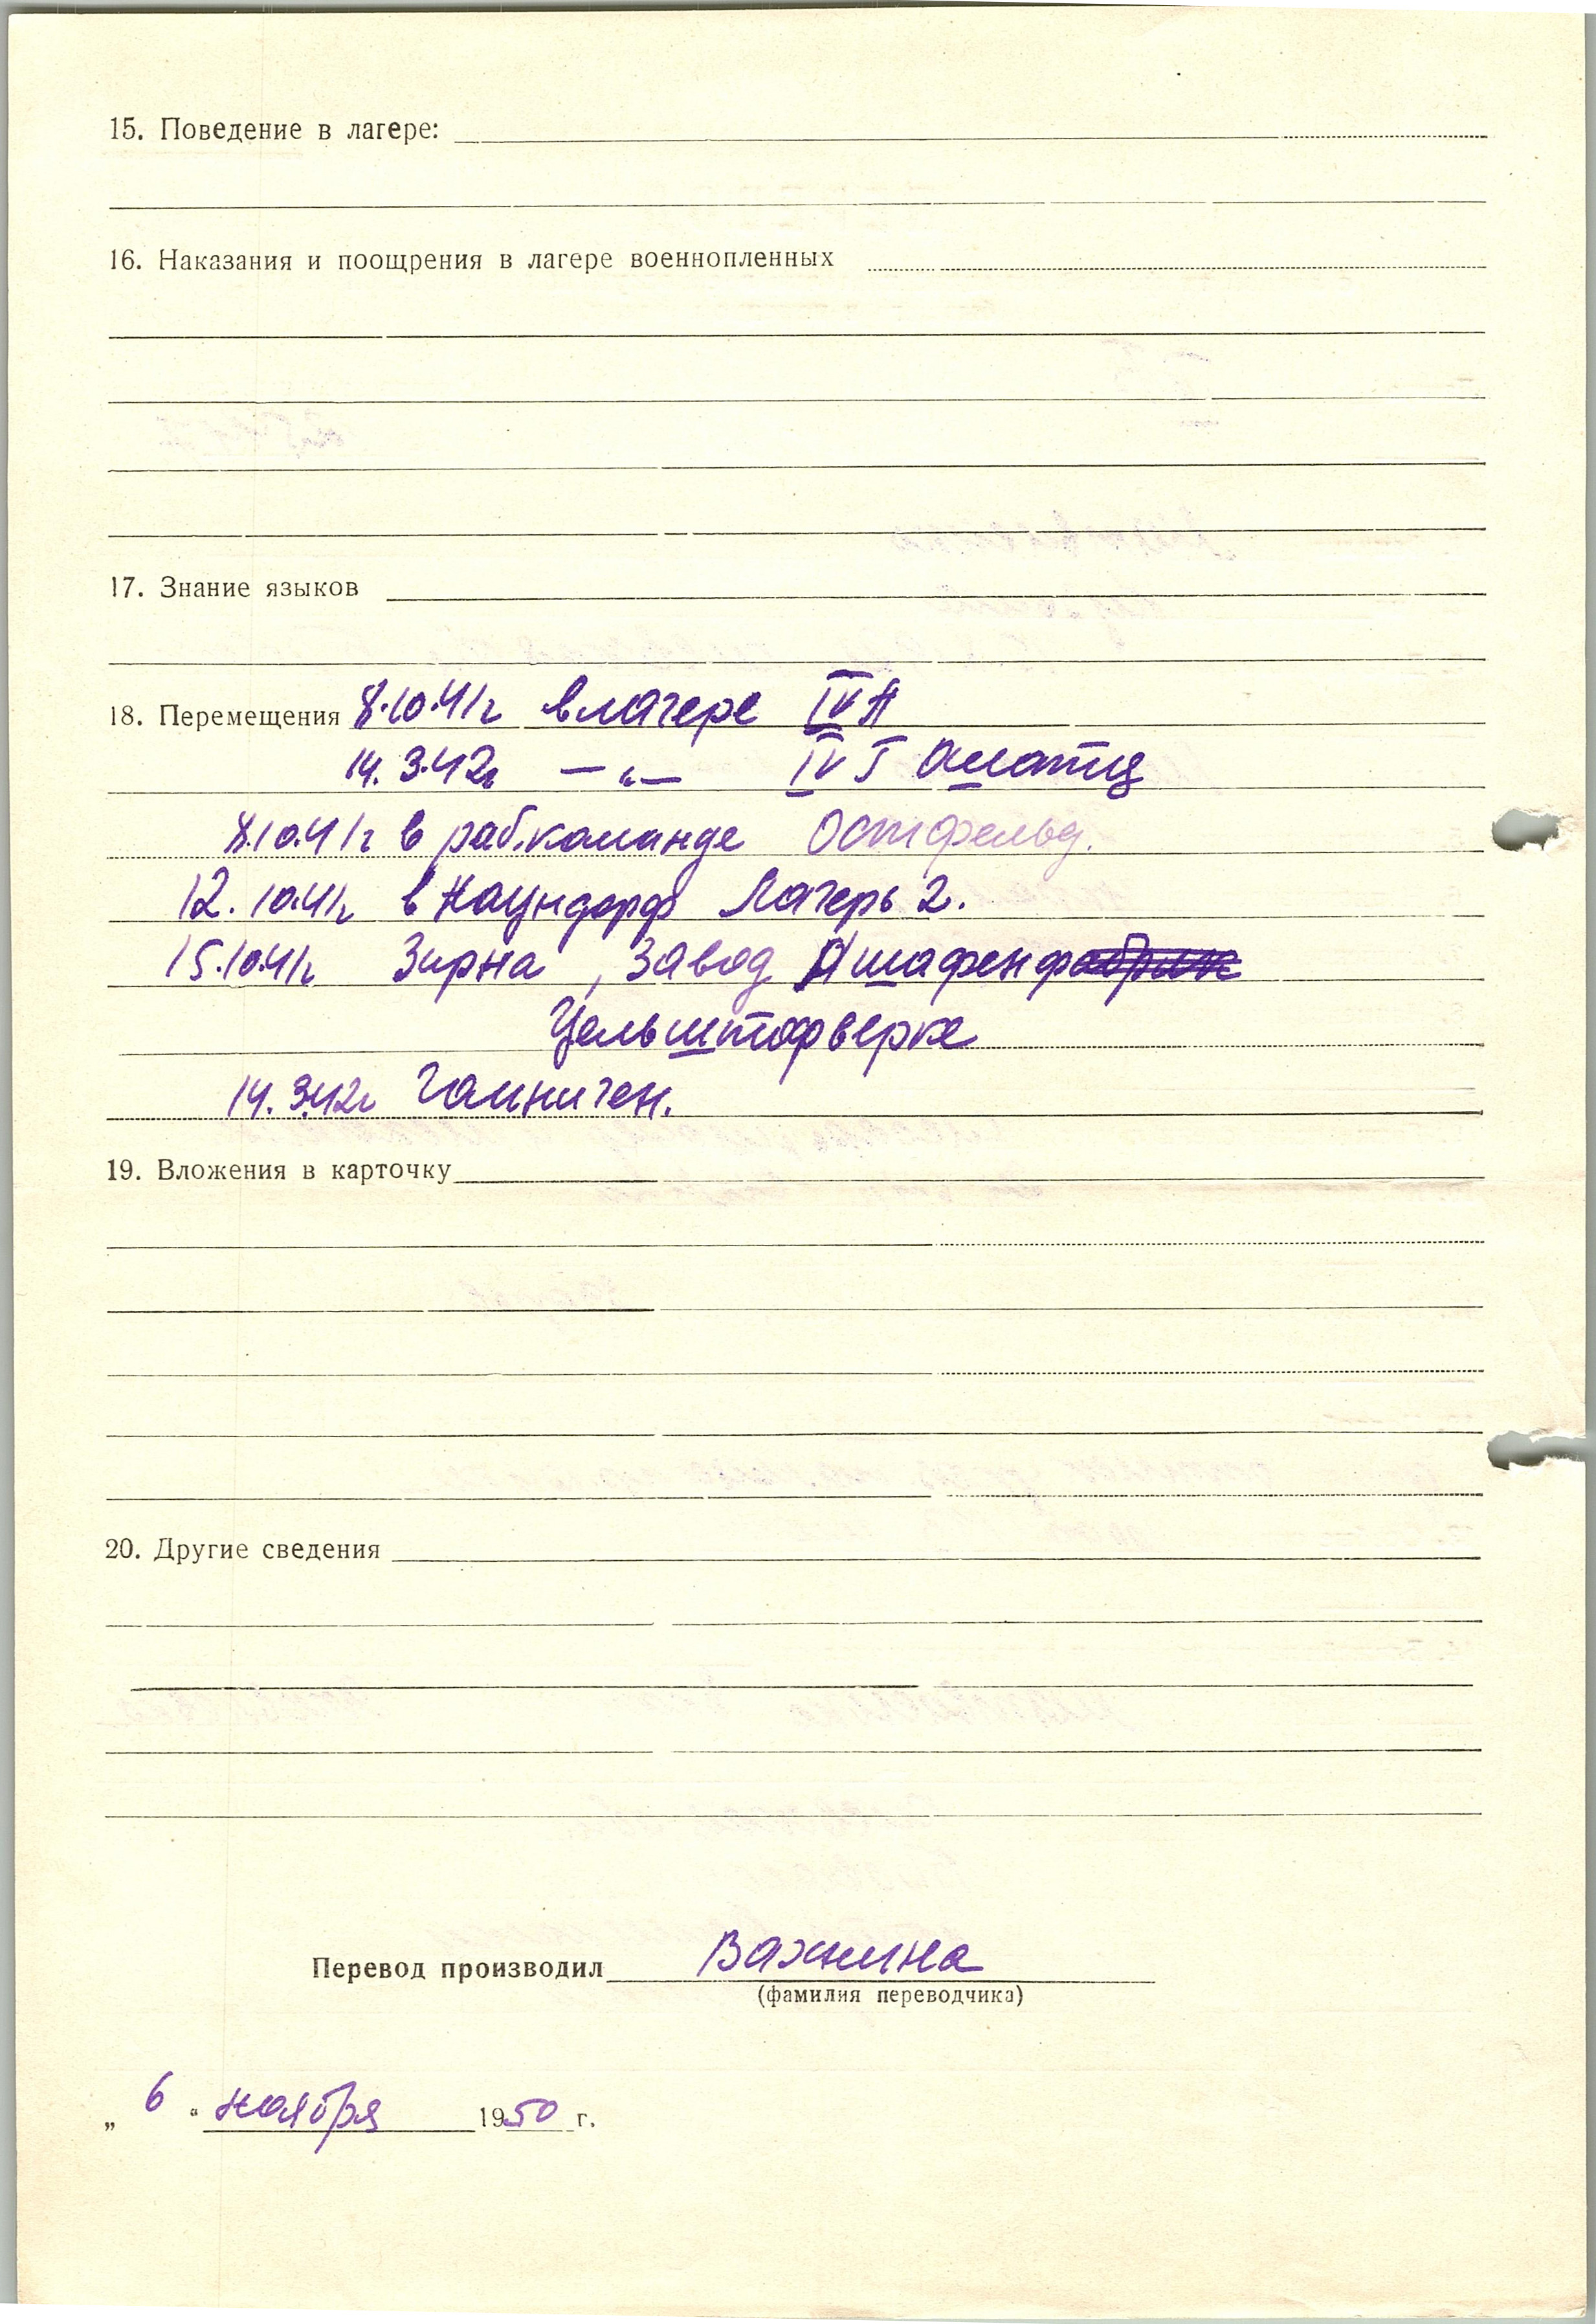 15. Поведение в лагере:
16. Наказания и поощрения в лагере военнопленных
17. Знание языков
18. Перемещения 8.10.41г в лагере IV А
14.3.42г —"— IV Ошатц
8.10.41г в раб.команде Остфельд.
12.10.41г в Наундорф Лагерь 2.
15.10.41г Зирна, Завод Ашафенф
Цельштофверке
14.3.42г Гайничен.
19. Вложения в карточку
20. Другие сведения
Перевод производил Вахнина
(фамилия переводчика)
„ 6 " ноября 1950 г.